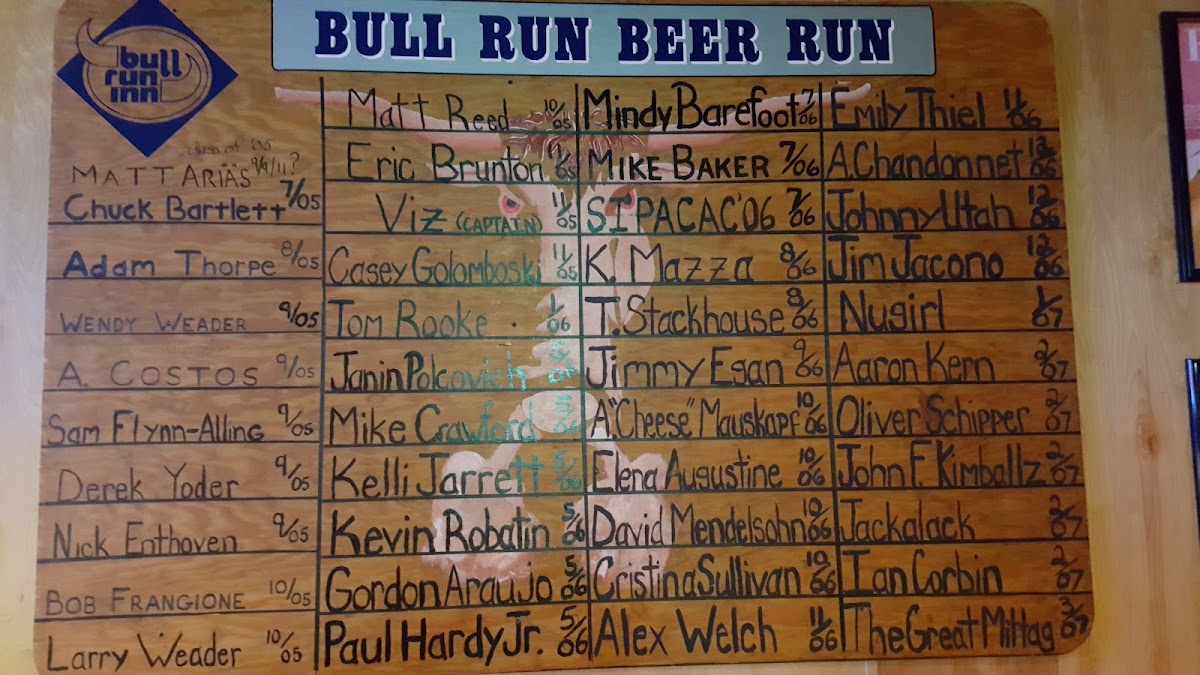 BULL RUN BEER RUN
bull
run
inn
Class of '05
MATT ARIAS 9/9/11?
Chuck Bartlett 7/05
Adam Thorpe 8/05
WENDY WEADER 9/05
A. COSTOS 9/05
Sam Flynn-Alling 9/05
Derek Yoder 9/05
Nick Enthoven 9/05
BOB FRANGIONE 10/05
Larry Weader 10/05
Matt Reed 10/05
Eric Brunton 11/05
Viz (CAPTAIN) 11/05
Casey Golomboski 11/05
Tom Rooke 1/06
Janin Polcovich 5/06
Mike Crawford 5/06
Kelli Jarrett 5/06
Kevin Robatin 5/06
Gordon Araujo 5/06
Paul Hardy Jr. 5/06
Mindy Barefoot 7/06
MIKE BAKER 7/06
SIPACAC'06 7/06
K. Mazza 8/06
T. Stackhouse 8/06
Jimmy Egan 9/06
A."Cheese" Mauskapf 10/06
Elena Augustine 10/06
David Mendelsohn 10/06
Cristina Sullivan 10/06
Alex Welch 11/06
Emily Thiel 11/06
A.Chandonnet 12/06
Johnny Utah 12/06
Jim Jacono 12/06
Nugirl 1/07
Aaron Kern 2/07
Oliver Schipper 2/07
John F. Kimballz 2/07
Jackalack 2/07
Ian Corbin 2/07
The Great Mittag 3/07